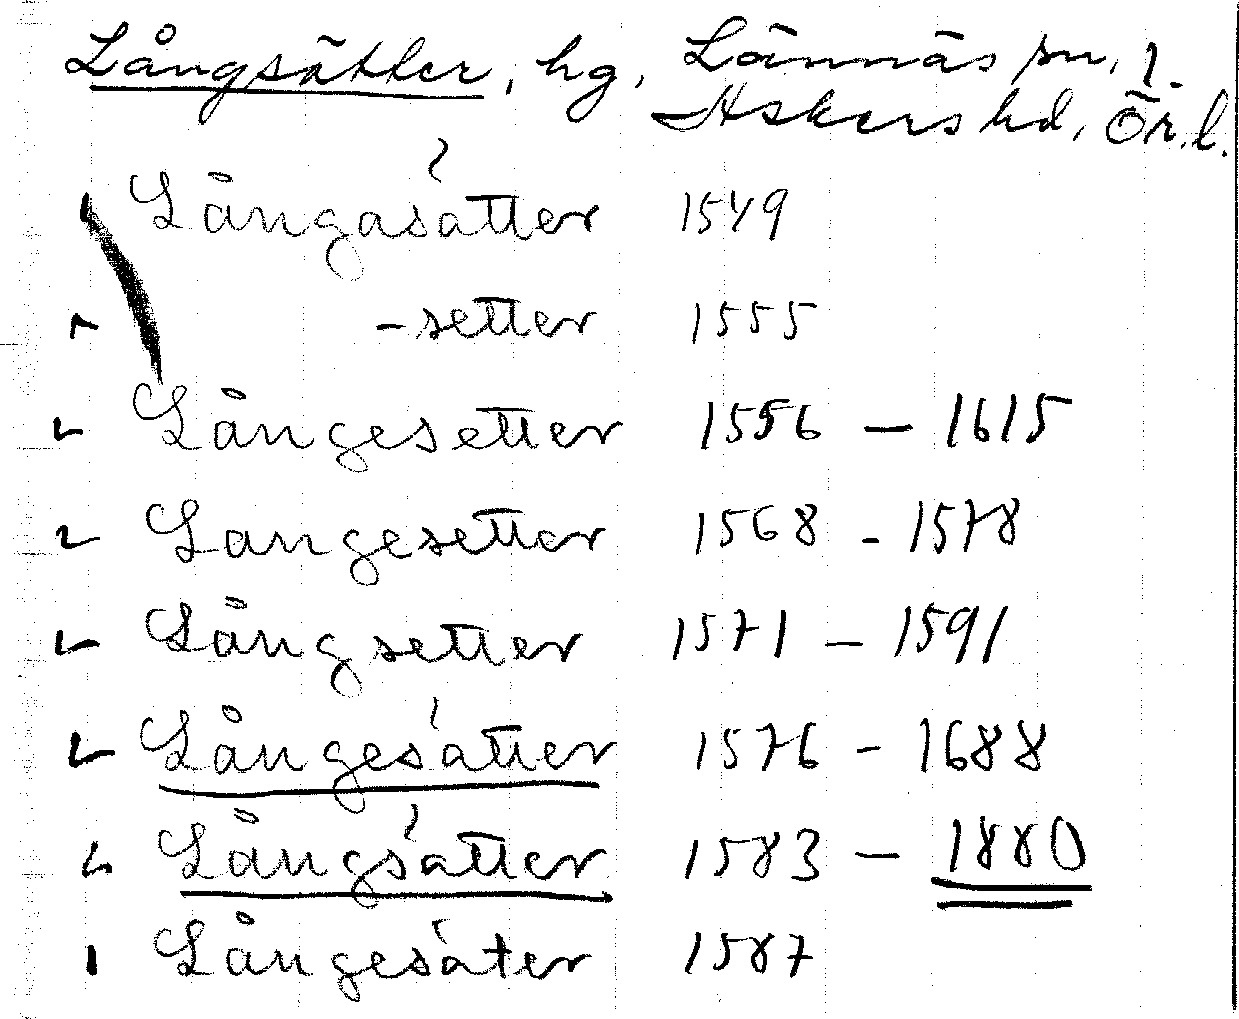 Långsätter, hg, Lännäs sn, 1.
Askers hd, Ör. l.
Långasätter 1549
-setter 1555
Långesetter 1556 - 1615
Langesetter 1568 - 1578
Långsetter 1571 - 1591
Långesätter 1576 - 1688
Långsätter 1583 - 1880
Långesäter 1587